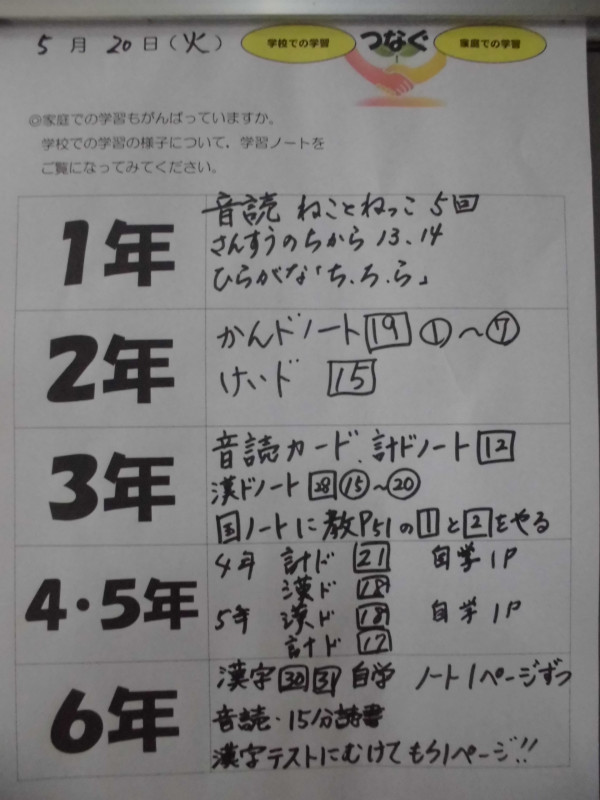 5月20日(火)
学校での学習 つなぐ 家庭での学習
◎家庭での学習もがんばっていますか。
学校での学習の様子について、学習ノートを
ご覧になってみてください。
1年
音読 ねことねっこ 5回
さんすうのちから 13、14
ひらがな「ち、ろ、ら」
2年
かんドノート 19 ①～⑦
けいド 15
3年
音読カード、計ドノート 12
漢ドノート 28 ⑮～⑳
国ノートに教P51の1と2をやる
4・5年
4年 計ド 21 自学1P
漢ド 18
5年 漢ド 18 自学1P
計ド 17
6年
漢字 30 31 自学 ノート1ページずつ
音読・15分読書
漢字テストにむけてもう1ページ!!